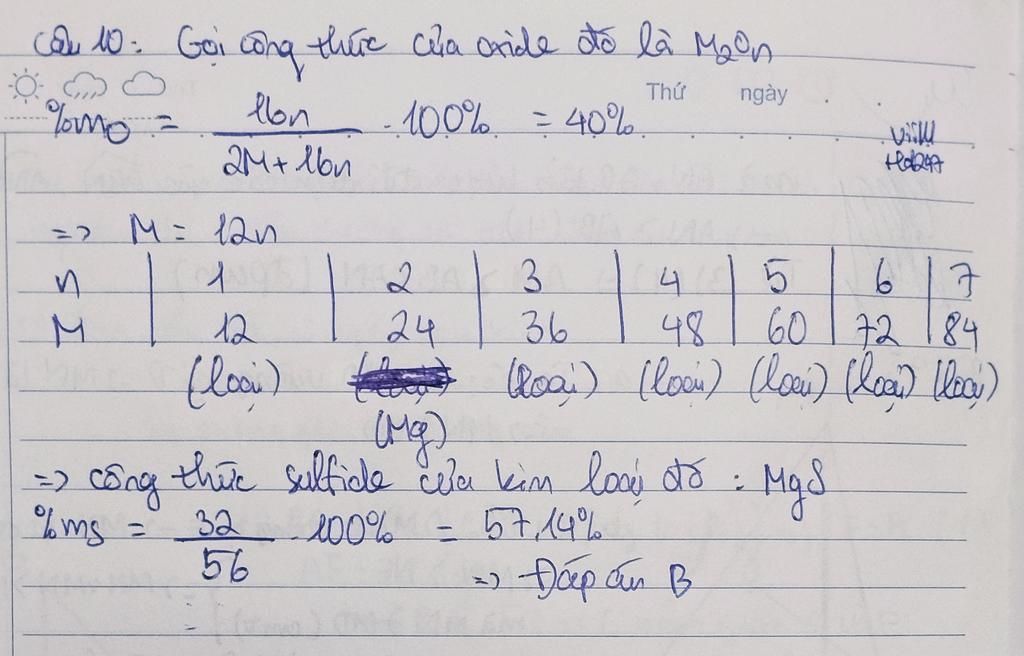 Câu 10: Gọi công thức của oxide đó là M₂Oₙ
Thứ ngày
%mO = 16n / (2M + 16n) . 100% = 40%
=> M = 12n
n | 1 | 2 | 3 | 4 | 5 | 6 | 7
M | 12 | 24 | 36 | 48 | 60 | 72 | 84
(loại) (loại) (loại) (loại) (loại) (loại)
(Mg)
=> công thức sulfide của kim loại đó : MgS
%mS = 32 / 56 . 100% = 57,14%
=> Đáp án B